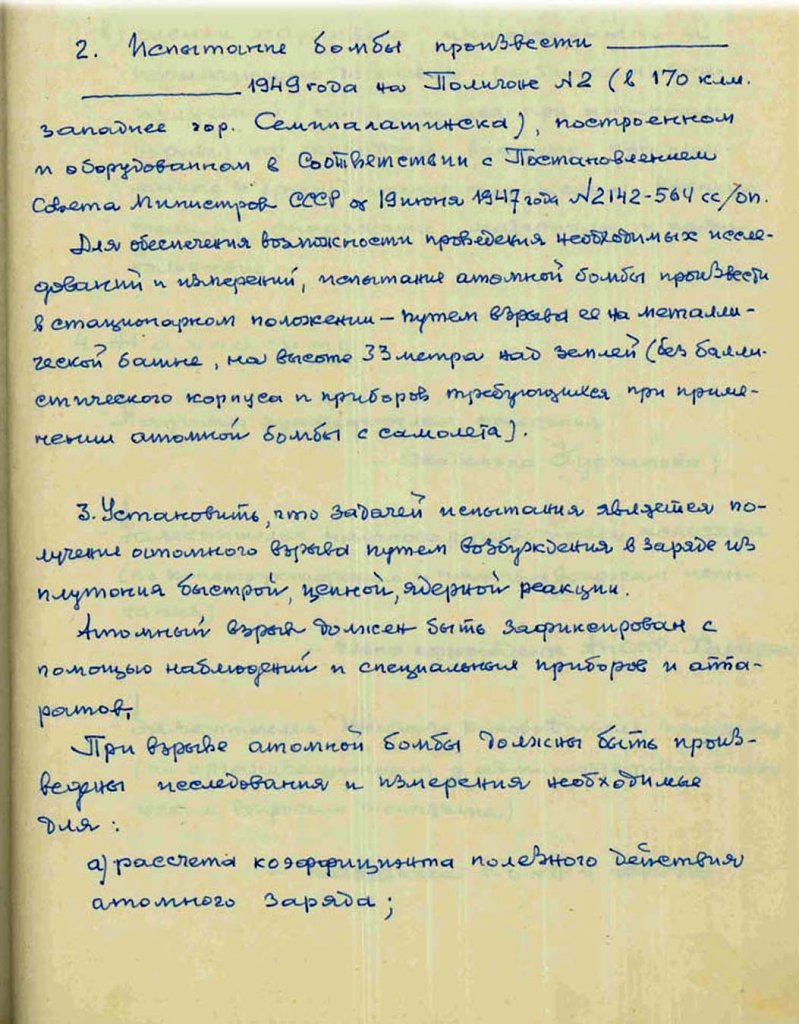 2. Испытание бомбы произвести ________
________ 1949 года на Полигоне №2 (в 170 клм.
западнее гор. Семипалатинска), построенном
и оборудованном в Соответствии с Постановлением
Совета Министров СССР от 19 июня 1947 года №2142-564 сс/оп.
Для обеспечения возможности проведения необходимых иссле-
дований и измерений, испытание атомной бомбы произвести
в стационарном положении – путем взрыва ее на металли-
ческой башне, на высоте 33 метра над землей (без балли-
стического корпуса и приборов требующихся при приме-
нении атомной бомбы с самолета).
3. Установить, что задачей испытания является по-
лучение атомного взрыва путем возбуждения в заряде из
плутония быстрой, цепной, ядерной реакции.
Атомный взрыв должен быть зафиксирован с
помощью наблюдений и специальных приборов и аппа-
ратов.
При взрыве атомной бомбы должны быть произ-
ведены исследования и измерения необходимые
для:
а) рассчета коэффициэнта полезного действия
атомного заряда;